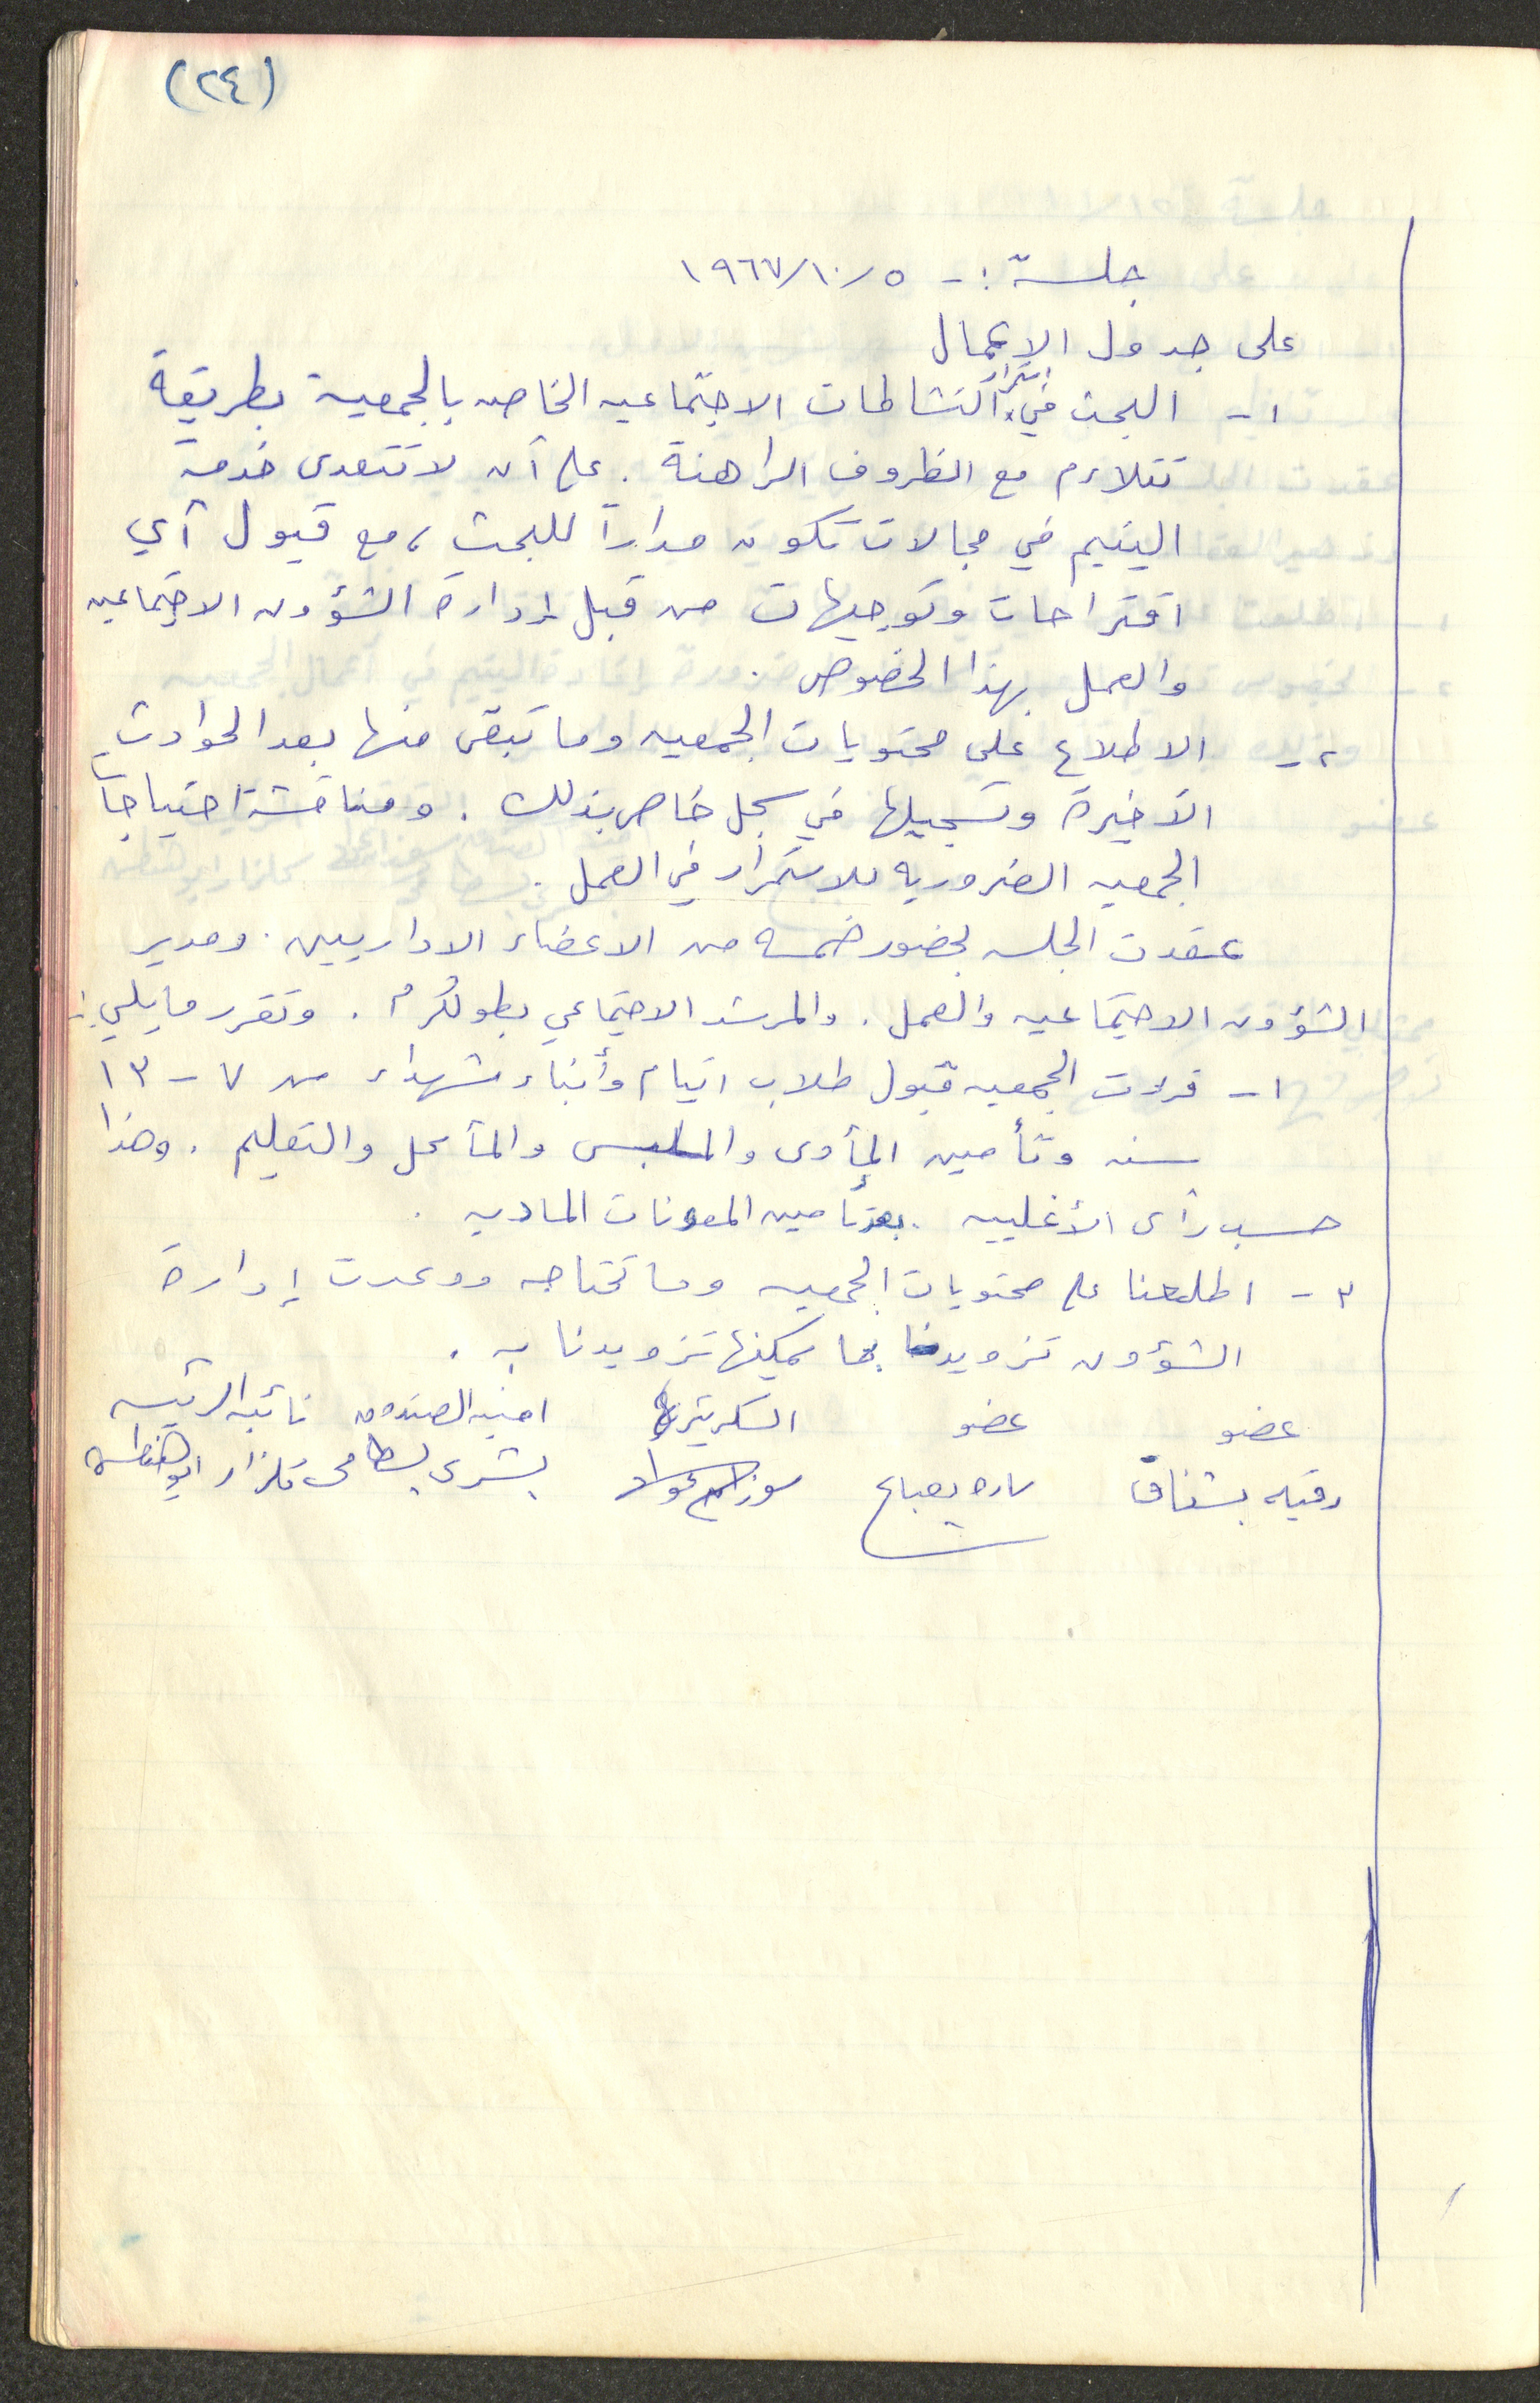 (٢٤)
جلسة :- ٥/١٠/١٩٦٧
على جدول الاعمال
١- البحث في استمرار النشاطات الاجتماعيه الخاصه بالجمعية بطريقة
تتلاءم مع الظروف الراهنة . على أن لا تتعدى خدمة
اليتيم في مجالات تكون مداراً للبحث ، مع قبول أي
اقتراحات وتوجيهات من قبل إدارة الشؤون الاجتماعيه
والعمل بهذا الخصوص .
٢- الاطلاع على محتويات الجمعيه وما تبقى منها بعد الحوادث
الأخيرة وتسجيلها في سجل خاص بذلك . ومناقشة احتياجات
الجمعيه الضروريه للاستمرار في العمل .
عقدت الجلسه بحضور خمسه من الاعضاء الاداريين . ومدير
الشؤون الاجتماعيه والعمل . والمرشد الاجتماعي بطولكرم . وتقرر مايلي :-
١- قررت الجمعيه قبول طلاب ايتام وأبناء شهداء من ٧ - ١٣
سنه وتأمين المأوى والملبس والمأكل والتعليم . وهذا
حسب رأى الأغلبيه . بعد تأمين المعونات الماديه .
٢- اطلعنا على محتويات الجمعيه وما تحتاجه ووعدت إدارة
الشؤون تزويدنا بما يمكنها تزويدنا به .
عضو عضو السكرتيرة امينه الصندوق نائبه الرئيسه
رقيه بشناق ساره بشرى بسطامى كلزار ابو هنطش